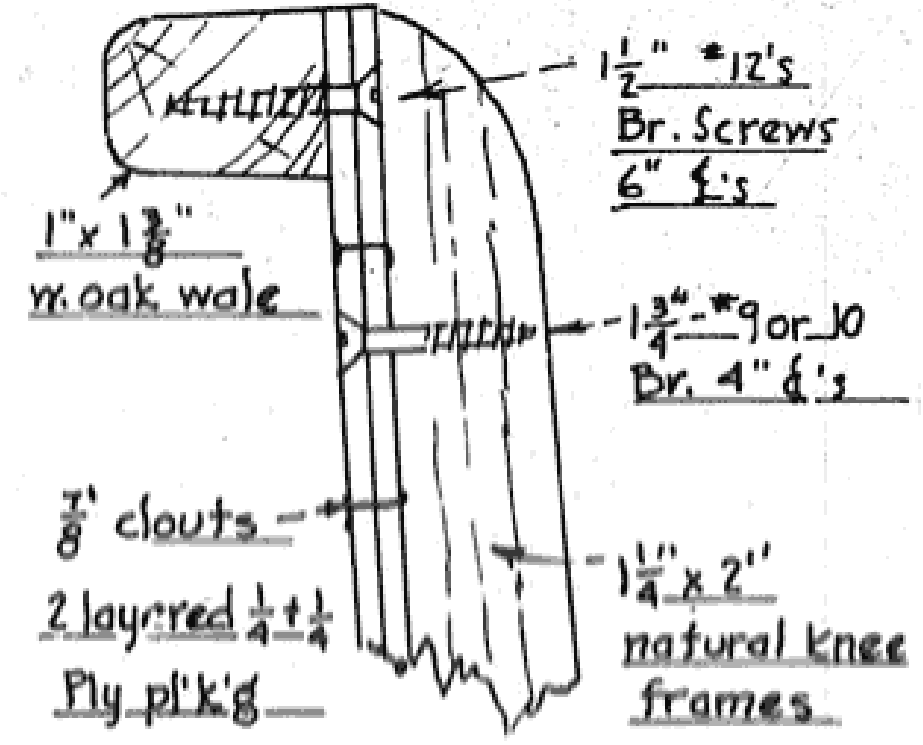 1 1/2" #12's
Br. Screws
6" ℄'s
1" x 1 7/8"
w. oak wale
1 3/4" - #9 or 10
Br. 4" ℄'s
7/8' clouts
2 layered 1/4 + 1/4
Ply pl'k'g
1 1/4" x 2"
natural knee
frames